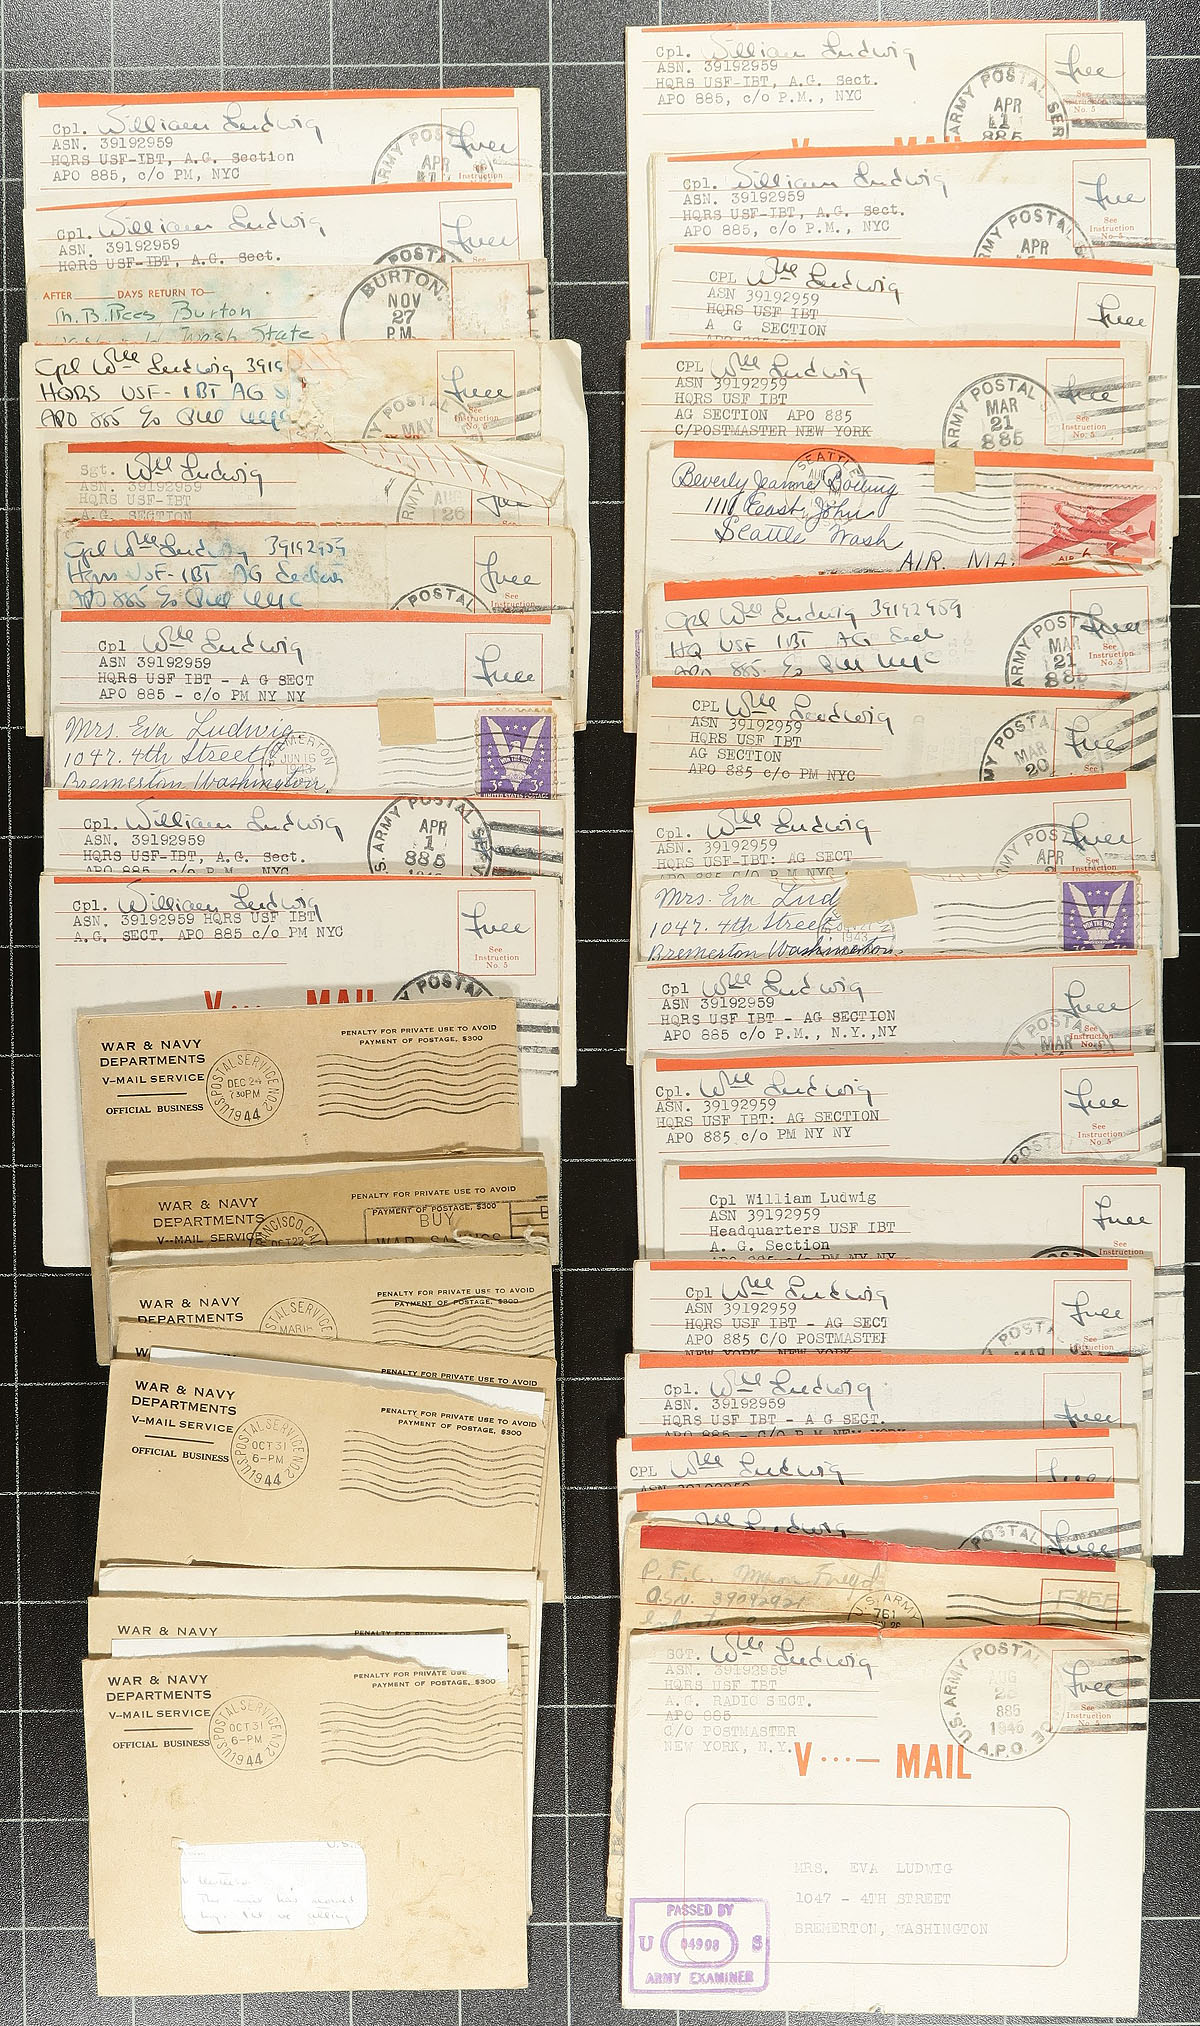 Cpl. William Ludwig
ASN. 39192959
HQRS USF-IBT, A.G. Section
APO 885, c/o PM, NYC
ARMY POST
APR
free
Instruction
Cpl. William Ludwig
ASN. 39192959
HQRS USF-IBT, A.G. Sect.
free
POSTAL
AFTER DAYS RETURN TO
M. B. Rees Burton
Wash State
BURTON.
NOV
27
P.M.
Cpl Wm Ludwig 3919
HQRS USF-IBT AG S
APO 885 c/o PM NYC
free
See
Instruction
No. 5
POSTAL
MAY
Sgt. Wm Ludwig
ASN. 39192959
HQRS USF-IBT
A.G. SECTION
ARMY
AUG
26
free
Cpl Wm Ludwig 39192959
Hqrs USF-IBT AG Section
APO 885 c/o PM NYC
free
See
Instruction
POSTAL
Cpl Wm Ludwig
ASN 39192959
HQRS USF IBT - A G SECT
APO 885 - c/o PM NY NY
free
Mrs. Eva Ludwig
1047. 4th Street
Bremerton Washington.
BREMERTON
JUN 16
3¢ 3¢
UNITED STATES POSTAGE
Cpl. William Ludwig
ASN. 39192959
HQRS USF-IBT, A.G. Sect.
APO 885, c/o P.M., NYC
S. ARMY POSTAL SER
APR
1
885
Cpl. William Ludwig
ASN. 39192959 HQRS USF IBT
A.G. SECT. APO 885 c/o PM NYC
free
See
Instruction
No. 5
V···— MAIL
POSTAL
WAR & NAVY
DEPARTMENTS
V-MAIL SERVICE
OFFICIAL BUSINESS
U.S. POSTAL SERVICE NO. 2
DEC 24
7 30 PM
1944
PENALTY FOR PRIVATE USE TO AVOID
PAYMENT OF POSTAGE, $300
WAR & NAVY
DEPARTMENTS
V--MAIL SERVICE
FRANCISCO, CAL
OCT 22
PENALTY FOR PRIVATE USE TO AVOID
PAYMENT OF POSTAGE, $300
BUY
WAR SAVINGS
WAR & NAVY
DEPARTMENTS
POSTAL SERVICE
MAR
PENALTY FOR PRIVATE USE TO AVOID
PAYMENT OF POSTAGE, $300
PENALTY FOR PRIVATE USE TO AVOID
WAR & NAVY
DEPARTMENTS
V-MAIL SERVICE
OFFICIAL BUSINESS
U.S. POSTAL SERVICE NO. 2
OCT 31
6-PM
1944
PENALTY FOR PRIVATE USE TO AVOID
PAYMENT OF POSTAGE, $300
WAR & NAVY
PENALTY FOR PRIVATE USE TO AVOID
WAR & NAVY
DEPARTMENTS
V-MAIL SERVICE
OFFICIAL BUSINESS
U.S. POSTAL SERVICE NO. 2
OCT 31
6-PM
1944
PENALTY FOR PRIVATE USE
PAYMENT OF POSTAGE, $300
Cpl. William Ludwig
ASN. 39192959
HQRS USF-IBT, A.G. Sect.
APO 885, c/o P.M., NYC
ARMY POSTAL SER
APR
885
free
See
Instruction
No. 5
V MAIL
Cpl. William Ludwig
ASN. 39192959
HQRS USF-IBT, A.G. Sect.
APO 885, c/o P.M., NYC
ARMY POSTAL S
APR
free
See
Instruction
No. 5
CPL Wm Ludwig
ASN 39192959
HQRS USF IBT
A G SECTION
free
CPL Wm Ludwig
ASN 39192959
HQRS USF IBT
AG SECTION APO 885
C/POSTMASTER NEW YORK
ARMY POSTAL S
MAR
21
885
free
See
Instruction
No. 5
Beverly Jeanne
1111 East John
Seattle Wash
SEATTLE
AIR. MA
AIR
Cpl Wm Ludwig 39192959
HQ USF IBT AG Sect
APO 885 c/o PM NYC
ARMY POST
MAR
21
885
free
See
Instruction
No. 5
CPL Wm Ludwig
ASN 39192959
HQRS USF IBT
AG SECTION
APO 885 c/o PM NYC
MY POSTA
MAR
20
free
See
Cpl. Wm Ludwig
ASN. 39192959
HQRS USF-IBT: AG SECT
APO 885 c/o P M NYC
ARMY POST
APR
free
See
Instruction
Mrs. Eva Lud
1047. 4th Street
Bremerton Washington.
1943
Cpl Wm Ludwig
ASN 39192959
HQRS USF IBT - AG SECTION
APO 885 c/o P.M., N.Y.,NY
MY POSTA
MAR
free
See
Instruction
No. 5
Cpl. Wm Ludwig
ASN. 39192959
HQRS USF IBT: AG SECTION
APO 885 c/o PM NY NY
POST
free
See
Instruction
No. 5
Cpl William Ludwig
ASN 39192959
Headquarters USF IBT
A. G. Section
APO 885 c/o PM NY NY
free
See
Instruction
Cpl Wm Ludwig
ASN 39192959
HQRS USF IBT - AG SECT
APO 885 C/O POSTMASTER
NEW YORK, NEW YORK
POSTA
MAR
free
See
Instruction
No. 5
Cpl. Wm Ludwig
ASN. 39192959
HQRS USF IBT - A G SECT.
APO 885 - C/O P M NEW YORK
free
CPL Wm Ludwig
ASN 39192959
Wm Ludwig
POSTAL
free
P.F.C. Myron
A.S.N. 39092921
U.S. ARMY
761
FREE
SGT. Wm Ludwig
ASN. 39192959
HQRS USF IBT
A.G. RADIO SECT.
APO 885
C/O POSTMASTER
NEW YORK, N.Y.
U.S. ARMY POSTAL SERVICE
AUG
885
1945
A.P.O.
free
See
Instruction
No. 5
V···— MAIL
MRS. EVA LUDWIG
1047 - 4TH STREET
BREMERTON, WASHINGTON
PASSED BY
U 04908 S
ARMY EXAMINER